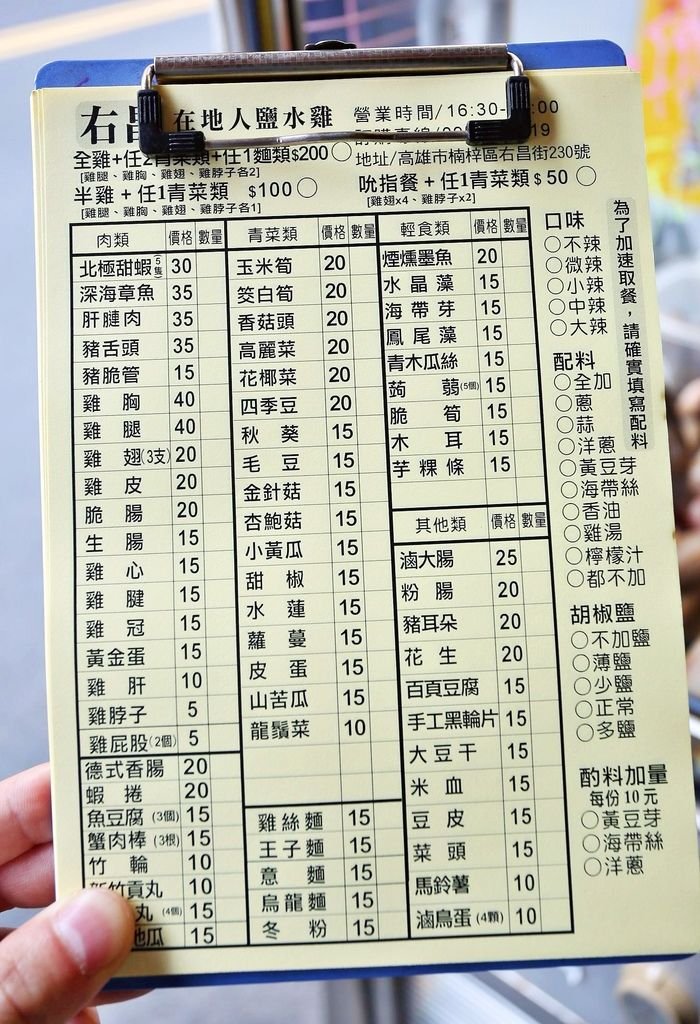 右昌 在地人鹽水雞
營業時間/16:30- :00
19
全雞+任2青菜類+任1麵類$200○
[雞腿、雞胸、雞翅、雞脖子各2]
地址/高雄市楠梓區右昌街230號
半雞+任1青菜類 $100○
[雞腿、雞胸、雞翅、雞脖子各1]
吮指餐+任1青菜類$50○
[雞翅x4、雞脖子x2]
肉類 價格 數量
北極甜蝦(5隻) 30
深海章魚 35
肝腱肉 35
豬舌頭 35
豬脆管 15
雞胸 40
雞腿 40
雞翅(3支) 20
雞皮 20
脆腸 20
生腸 15
雞心 15
雞腱 15
雞冠 15
黃金蛋 15
雞肝 10
雞脖子 5
雞屁股(2個) 5
德式香腸 20
蝦捲 20
魚豆腐(3個) 15
蟹肉棒(3根) 15
竹輪 10
新竹貢丸 10
丸(4個) 15
地瓜 15
青菜類 價格 數量
玉米筍 20
筊白筍 20
香菇頭 20
高麗菜 20
花椰菜 20
四季豆 20
秋葵 15
毛豆 15
金針菇 15
杏鮑菇 15
小黃瓜 15
甜椒 15
水蓮 15
蘿蔓 15
皮蛋 15
山苦瓜 15
龍鬚菜 10
雞絲麵 15
王子麵 15
意麵 15
烏龍麵 15
冬粉 15
輕食類 價格 數量
煙燻墨魚 20
水晶藻 15
海帶芽 15
鳳尾藻 15
青木瓜絲 15
蒟蒻(5個) 15
脆筍 15
木耳 15
芋粿條 15
其他類 價格 數量
滷大腸 25
粉腸 20
豬耳朵 20
花生 20
百頁豆腐 15
手工黑輪片 15
大豆干 15
米血 15
豆皮 15
菜頭 15
馬鈴薯 10
滷鳥蛋(4顆) 10
口味
○不辣
○微辣
○小辣
○中辣
○大辣
配料
○全加
○蔥
○蒜
○洋蔥
○黃豆芽
○海帶絲
○香油
○雞湯
○檸檬汁
○都不加
胡椒鹽
○不加鹽
○薄鹽
○少鹽
○正常
○多鹽
酌料加量
每份10元
○黃豆芽
○海帶絲
○洋蔥
為了加速取餐，請確實填寫配料